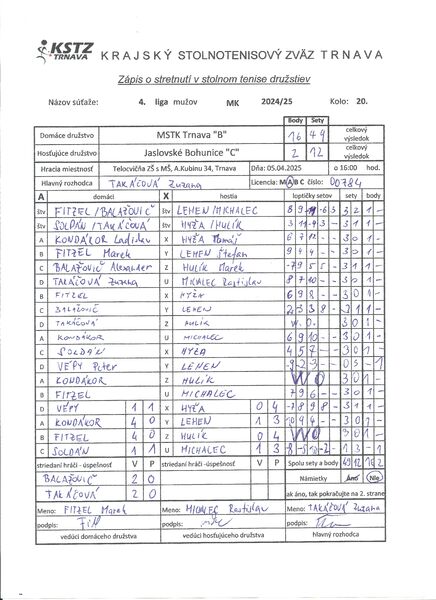 KSTZ TRNAVA KRAJSKÝ STOLNOTENISOVÝ ZVÄZ TRNAVA
Zápis o stretnutí v stolnom tenise družstiev
Názov súťaže: 4. liga mužov MK 2024/25 Kolo: 20.
Body Sety
Domáce družstvo MSTK Trnava "B" 16 49 celkový výsledok
Hosťujúce družstvo Jaslovské Bohunice "C" 2 12 celkový výsledok
Hracia miestnosť Telocvičňa ZŠ s MŠ, A.Kubinu 34, Trnava Dňa: 05.04.2025 o 16:00 hod.
Hlavný rozhodca TAKÁČOVÁ Zuzana Licencia: M A B C číslo: 00784
A domáci X hostia loptičky setov sety body
štv FITZEL/BALAŽOVIČ štv LEHEN/MICHALEC
štv SOLDÁN/TAKÁČOVÁ štv HÝŽA/HULÍK
A KONDÁKOR Ladislav X HÝŽA Tomáš
B FITZEL Marek Y LEHEN Štefan 9 4 4 - - 3 0 1 -
C BALAŽOVIČ Alexander Z HULÍK Marek
D TAKÁČOVÁ Zuzana U MICHALEC Rastislav
B FITZEL X HÝŽA 6 9 8 - - 3 0 1 -
C BALAŽOVIČ Y LEHEN
D TAKÁČOVÁ Z HULIK W.O. 3 0 1 -
A KONDÁKOR U MICHALEC 6 9 10 - - 3 0 1 -
C SOLDÁN X HÝŽA 4 5 7 - - 3 0 1 -
D VÉPY Peter Y LEHEN
A KONDÁKOR Z HULÍK WO 3 0 1 -
B FITZEL U MICHALEC 7 9 6 - - 3 0 1 -
D VÉPY 1 1 X HÝŽA 0 4 -7 8 9 8 - 3 1 1 -
A KONDÁKOR 4 0 Y LEHEN 1 3 10 4 4 - - 3 0 1 -
B FITZEL 4 0 Z HULIK 0 4 WO 3 0 1 -
C SOLDÁN 1 1 U MICHALEC 1 3
striedaní hráči - úspešnosť V P striedaní hráči - úspešnosť V P Spolu sety a body 49 12 16 2
BALAŽOVIČ 2 0 Námietky Áno Nie
TAKÁČOVÁ 2 0 ak áno, tak pokračujte na 2. strane
Meno: FITZEL Marek Meno: MICHALEC Rastislav Meno: TAKÁČOVÁ Zuzana
podpis: podpis: podpis:
vedúci domáceho družstva vedúci hosťujúceho družstva hlavný rozhodca